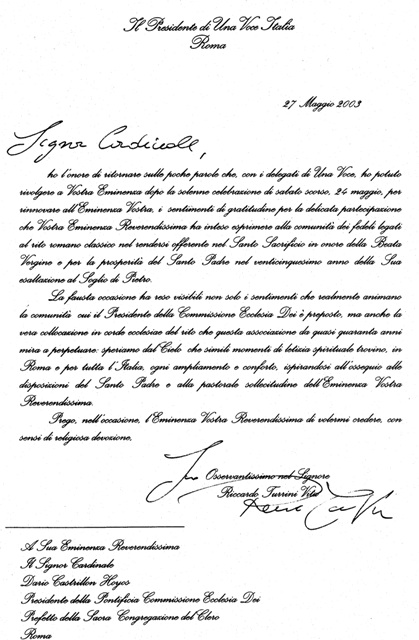 Il Presidente di Una Voce Italia
Roma
27 Maggio 2003
Signor Cardinale,
ho l'onore di ritornare sulle poche parole che, con i delegati di Una Voce, ho potuto
rivolgere a Vostra Eminenza dopo la solenne celebrazione di sabato scorso, 24 maggio, per
rinnovare all'Eminenza Vostra, i sentimenti di gratitudine per la delicata partecipazione
che Vostra Eminenza Reverendissima ha inteso esprimere alla comunità dei fedeli legati
al rito romano classico nel rendersi offerente nel Santo Sacrificio in onore della Beata
Vergine e per la prosperità del Santo Padre nel venticinquesimo anno della Sua
esaltazione al Soglio di Pietro.
La fausta occasione ha reso visibili non solo i sentimenti che realmente animano
la comunità cui il Presidente della Commissione Ecclesia Dei è preposto, ma anche la
vera collocazione in corde ecclesiae del rito che questa associazione da quasi quaranta anni
mira a perpetuare: speriamo dal Cielo che simili momenti di letizia spirituale trovino, in
Roma e per tutta l'Italia, ogni ampliamento e conforto, ispirandosi all'ossequio alle
disposizioni del Santo Padre e alla pastorale sollecitudine dell'Eminenza Vostra
Reverendissima.
Prego, nell'occasione, l'Eminenza Vostra Reverendissima di volermi credere, con
sensi di religiosa devozione,
Osservantissimo nel Signore
Riccardo Turrini Vita
A Sua Eminenza Reverendissima
Il Signor Cardinale
Dario Castrillon Hoyos
Presidente della Pontificia Commissione Ecclesia Dei
Prefetto della Sacra Congregazione del Clero
Roma